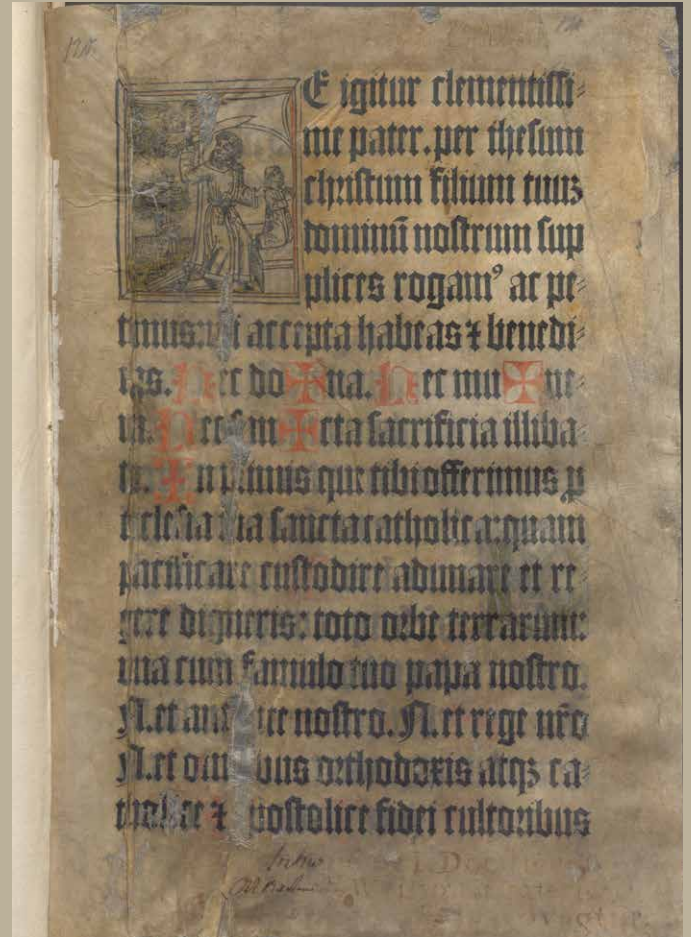 E igitur clementissi⸗
me pater. per ihesum
christum filium tuuʒ
dominū nostrum sup
plices rogamꝰ ac pe⸗
timus: uti accepta habeas ⁊ benedi⸗
cas. Hec do ✠ na. Hec mu ✠ ne⸗
ra. Hec san ✠ cta sacrificia illiba⸗
ta. In primis que tibi offerimus ꝓ
ecclesia tua sancta catholica: quam
pacificare custodire adunare et re⸗
gere digneris: toto orbe terrarum:
una cum famulo tuo papa nostro.
N. et antistite nostro. N. et rege nr̄o
N. et omnibus orthodoxis atqꝫ ca⸗
tholice ⁊ apostolice fidei cultoribus